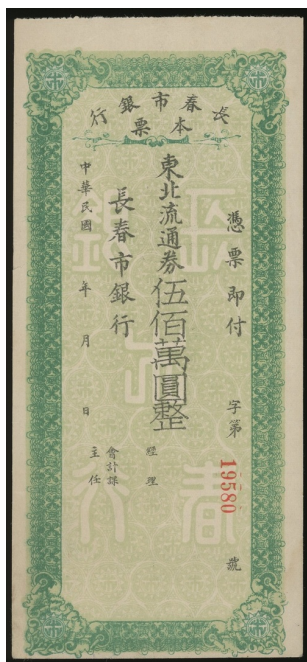 長春市銀行
本票
憑票即付
字第19580號
東北流通券伍佰萬圓整
長春市銀行
經理
會計課
主任
中華民國 年 月 日